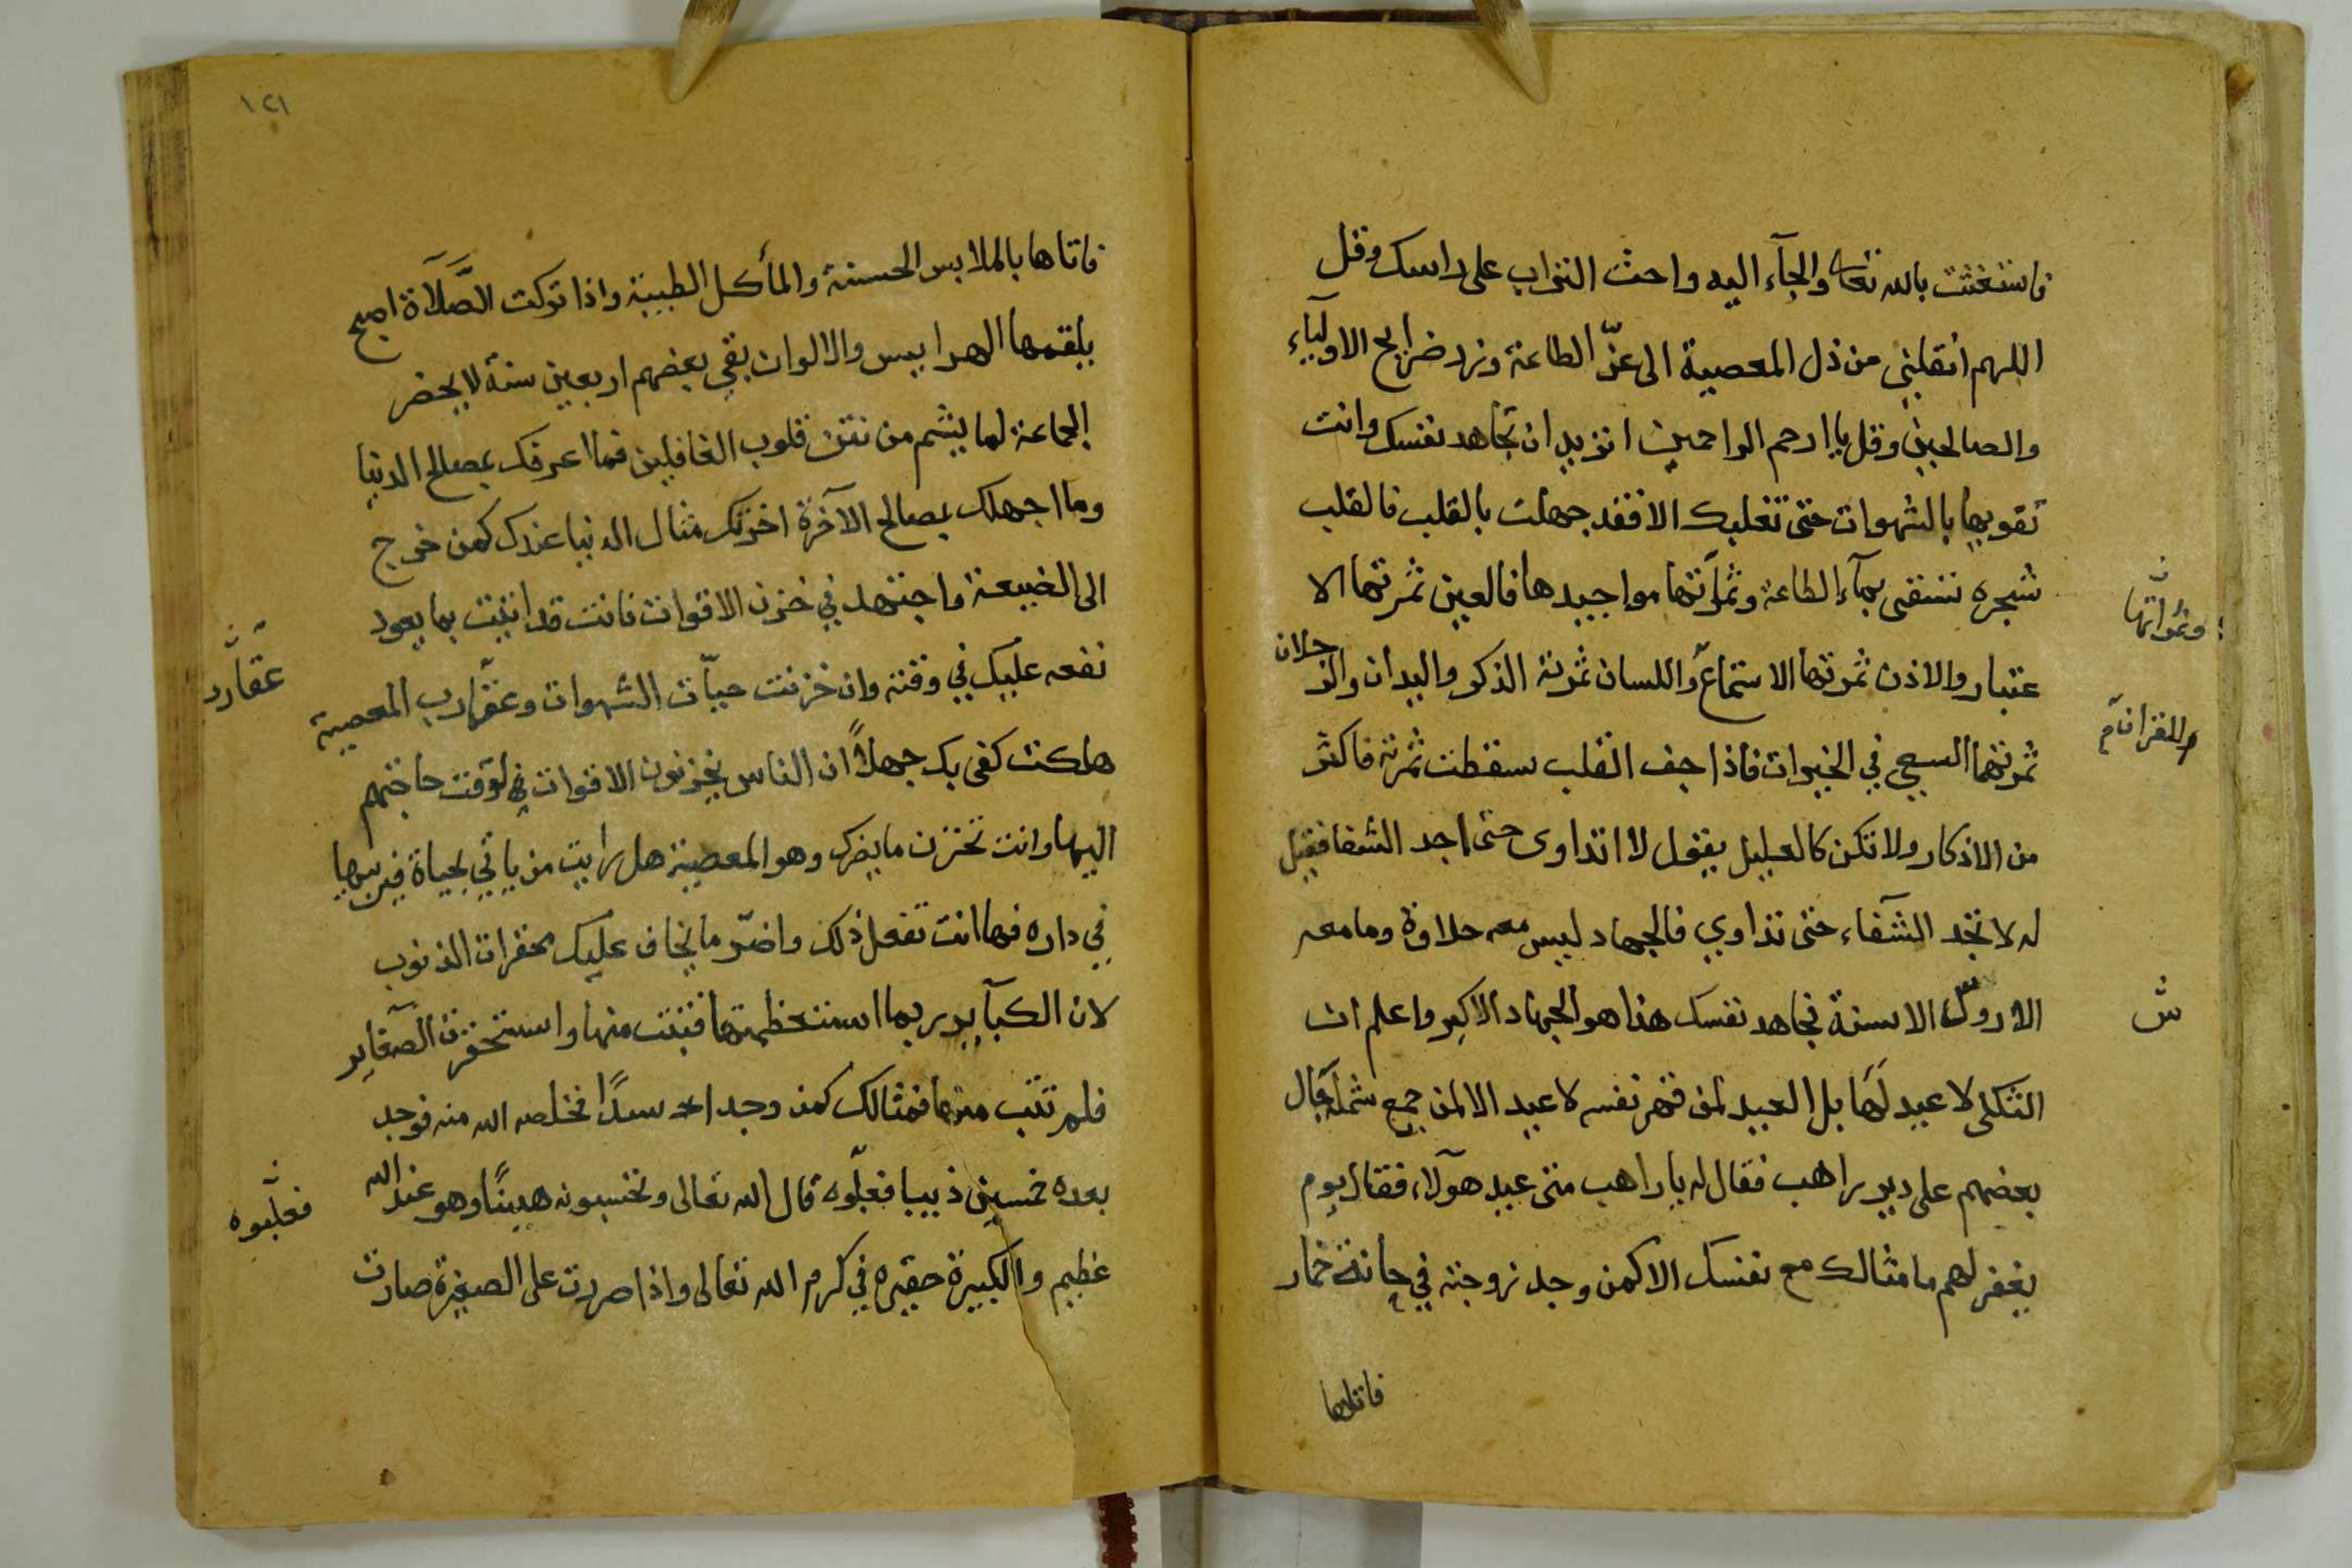 فاستغثت بالله تعالى والجآء اليه واحث التراب على راسك وقل
اللهم انقلني من ذل المعصية الى عزّ الطاعة وزر ضرايح الاوليآء
والصالحين وقل يا ارحم الراحمين اتزيد ان تجاهد نفسك وانت
تقويها بالشهوات حتى تغلبك الا فقد جهلت بالقلب فالقلب
شجره تسقى بمآء الطاعة وثمرآتها مواجيدها فالعين ثمرتها الا
وثمراتها
عتبار والاذن ثمرتها الاستماع واللسان ثمرته الذكر واليدان والرجلان
للقرآن م
ثمرتهما السعي في الخيرات فاذا جف القلب سقطت ثمرته فاكثر
من الاذكار ولا تكن كالعليل يقول لا اتداوى حتى اجد الشفا فقيل
له لا تجد الشفآء حتى تداوي فالجهاد ليس معه حلاوة وما معه
الا روس الاسنة فجاهد نفسك هذا هو الجهاد الاكبر واعلم ان
ش
الثكلى لا عيد لها بل العيد لمن قهر نفسه لا عيد الا لمن جمع شمله قال
بعضهم على دير راهب فقال له يا راهب متى عيد هولآء فقال يوم
يغفر لهم ما مثالك مع نفسك الا كمن وجد زوجته في حانة خمار
فاتاها
١٢١
فاتاها بالملابس الحسنة والمأكل الطيبة واذا تركت الصّلآة اصبح
يلقمها الهرايس والالوان بقي بعضهم اربعين سنة لا يحضر
الجماعة لما يشم من نتن قلوب الغافلين فما اعرفك بمصالح الدنيا
وما اجهلك بمصالح الآخرة اخترلك مثال الدنيا عندك كمن خرج
الى الضيعة واجتهد في خزن الاقوات فانت قد اتيت بما يعود
نفعه عليك في وقته وان خزنت حيّات الشهوات وعقارب المعصية
عقارب
هلكت كفى بك جهلاً ان الناس يخزنون الاقوات لوقت حاجتهم
اليها وانت تخزن ما يضرك وهو المعصية هل رايت من ياتي بحياة فيربيها
في داره فها انت تفعل ذلك واضرّ ما يخاف عليك محقرات الذنوب
لان الكبآير ربما استعظمتها فتبت منها واستحقرت الصغآير
فلم تتب منها فمثالك كمن وجد اسدًا فخلصه الله منه فوجد
بعده خمسين ذيبا فغلبوه قال الله تعالى وتحسبونه هينًا وهو عند الله
فغلبوه
عظيم والكبيرة حقيره في كرم الله تعالى واذا صررت على الصغيرة صارت